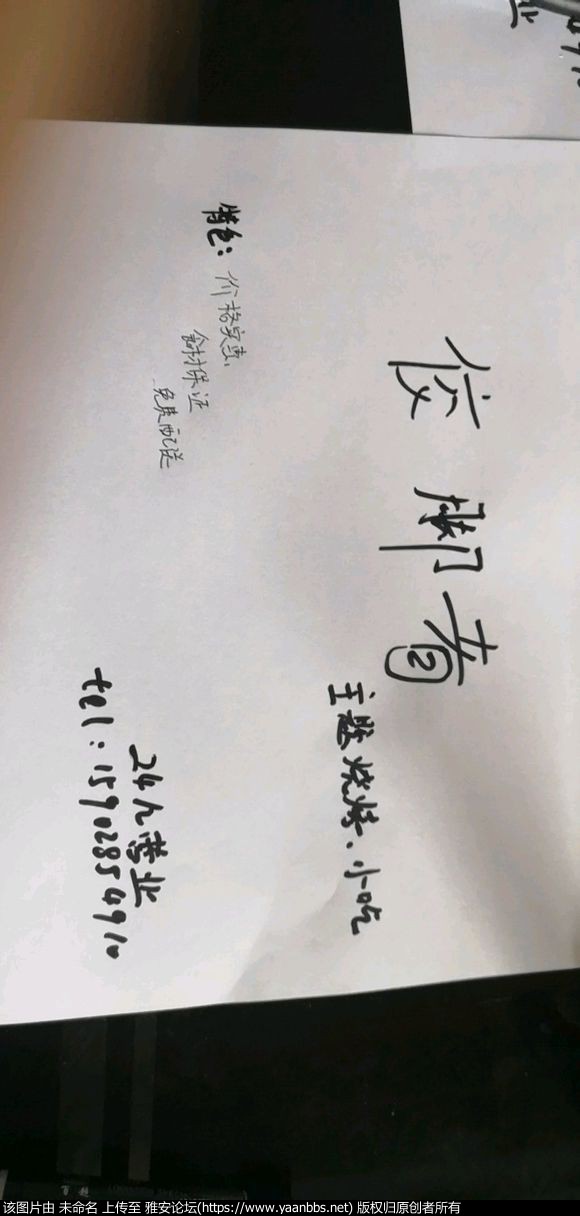 主题烧烤、小吃
特色:价格实惠、
食材保证
免费配送
24h营业
tel:15902854910
该图片由 未命名 上传至 雅安论坛(https://www.yaanbbs.net) 版权归原创者所有